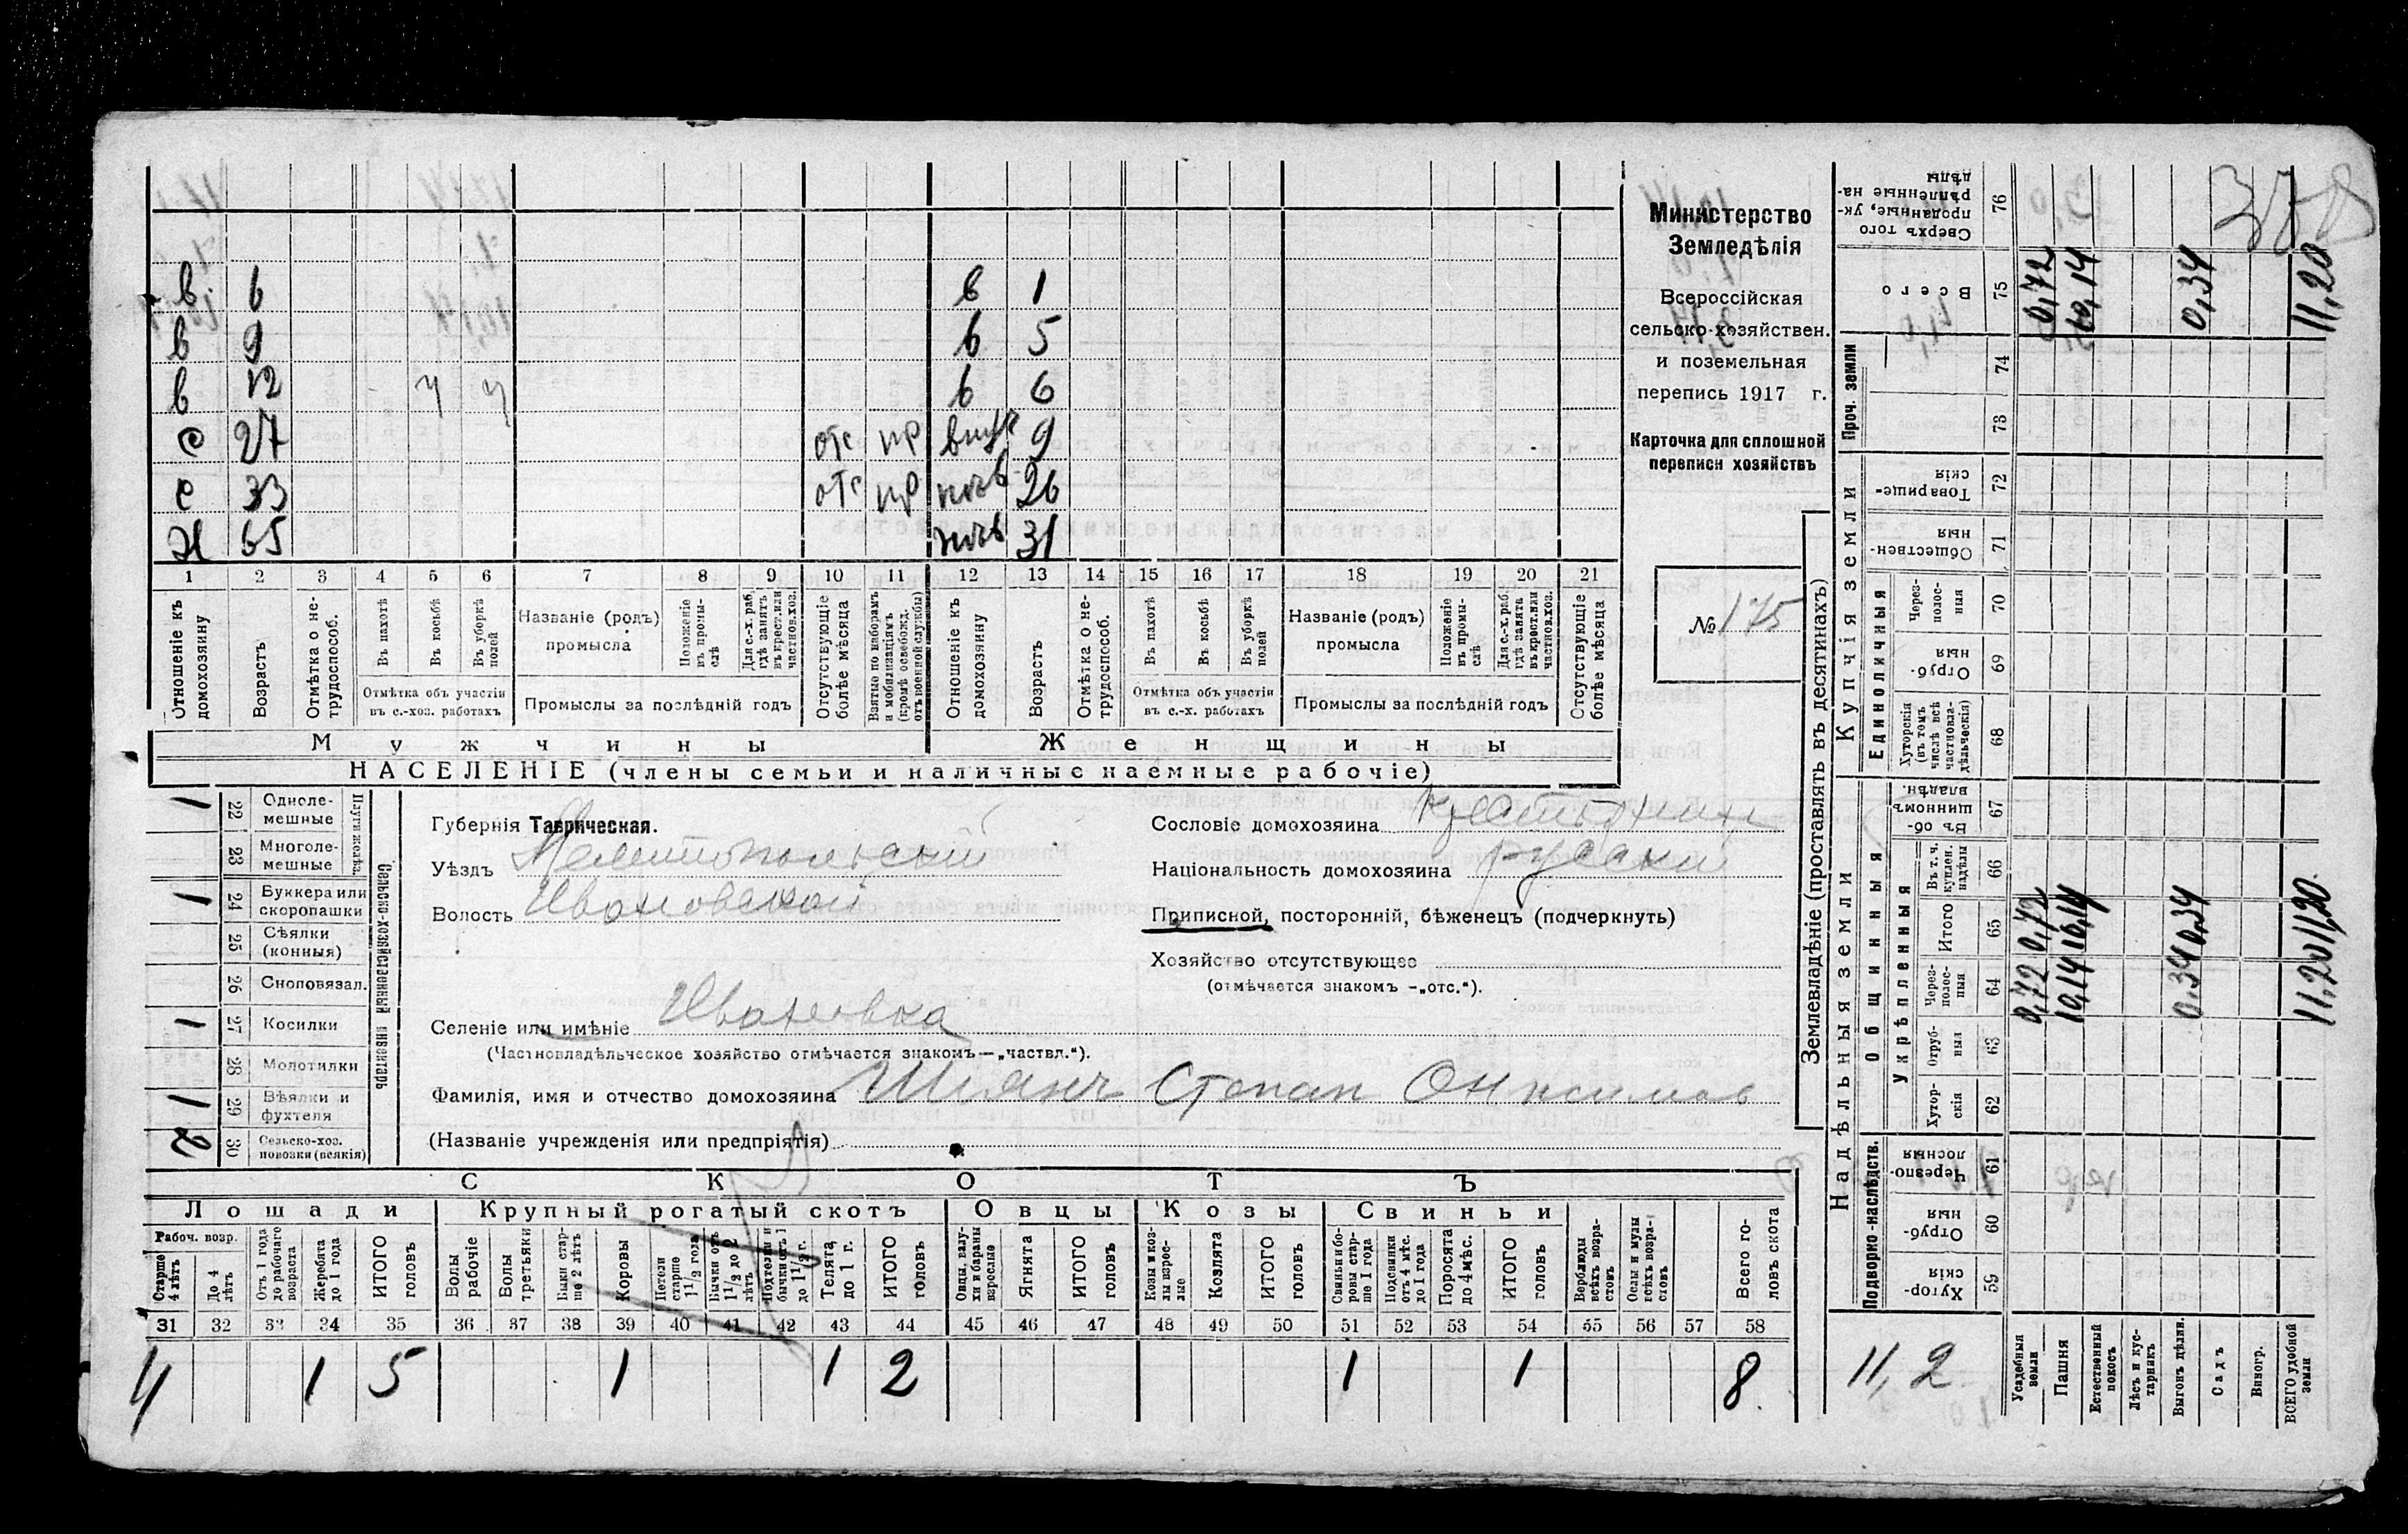 Министерство
Земледѣлія
Всероссійская
сельско-хозяйствен.
и поземельная
перепись 1917 г.
Карточка для сплошной
переписи хозяйствъ
№ 175
в 6 в 1
в 9 в 5
в 12 ч ч в 6
с 27 отс пр внук 9
с 33 отс пр 26
Х 65 31
1 2 3 4 5 6 7 8 9 10 11 12 13 14 15 16 17 18 19 20 21
Отношеніе къ домохозяину
Возрастъ
Отмѣтка о не-трудоспособ.
Въ пахотѣ
Въ косьбѣ
Въ уборкѣ полей
Отмѣтка объ участіи въ с.-хоз. работахъ
Названіе (родъ) промысла
Положеніе въ промы-слѣ
Для с.-х. раб. гдѣ занятъ въ крест. или частнов. хоз.
Промыслы за послѣдній годъ
Отсутствующіе болѣе мѣсяца
Взятые по наборамъ и мобилизаціямъ (кромѣ освобожд. отъ военной службы)
Отношеніе къ домохозяину
Возрастъ
Отмѣтка о не-трудоспособ.
Въ пахотѣ
Въ косьбѣ
Въ уборкѣ полей
Отмѣтка объ участіи въ с.-х. работахъ
Названіе (родъ) промысла
Положеніе въ промы-слѣ
Для с.-х. раб. гдѣ занята въ крест. или частнов. хоз.
Промыслы за послѣдній годъ
Отсутствующіе болѣе мѣсяца
Мужчины Женщины
НАСЕЛЕНІЕ (члены семьи и наличные наемные рабочіе)
Сельско-хозяйственный инвентарь
Плуги желѣз.
1 22 Одноле-мешные
23 Многоле-мешные
1 24 Буккера или скоропашки
25 Сѣялки (конныя)
26 Сноповязал.
1 27 Косилки
28 Молотилки
1 29 Вѣялки и фухтеля
2 30 Сельско-хоз. повозки (всякія)
Губернія Таврическая.
Уѣздъ Мелитопольский
Волость Ивановской
Селеніе или имѣніе Ивановка
(Частновладѣльческое хозяйство отмѣчается знакомъ—„частвл.“).
Фамилія, имя и отчество домохозяина Шиянъ Степан Онисимов
(Названіе учрежденія или предпріятія)
Сословіе домохозяина крестьянин
Національность домохозяина русский
Приписной, посторонній, бѣженецъ (подчеркнуть)
Хозяйство отсутствующее
(отмѣчается знакомъ -„отс.“).
СКОТЪ
Лошади Крупный рогатый скотъ Овцы Козы Свиньи
Рабоч. возр.
Старше 4 лѣтъ
До 4 лѣтъ
Отъ 1 года до рабочаго возраста
Жеребята до 1 года
ИТОГО головъ
Волы рабочіе
Волы третьяки
Быки стар-ше 2 лѣтъ
Коровы
Нетели старше 1 1/2 года
Бычки отъ 1 1/2 до 2 лѣтъ
Телята до 1 г.
ИТОГО головъ
Овцы, валу-хи и бараны взрослые
Ягнята
ИТОГО головъ
Козы и коз-лы взрос-лые
Козлята
ИТОГО головъ
Свиньи и бо-ровы стар-ше 1 года
Подсвинки отъ 4 мѣс. до 1 года
Поросята до 4 мѣс.
ИТОГО головъ
Верблюды всѣхъ возра-стовъ
Ослы и мулы всѣхъ возра-стовъ
Всего го-ловъ скота
31 32 33 34 35 36 37 38 39 40 41 42 43 44 45 46 47 48 49 50 51 52 53 54 55 56 57 58
4 1 5 1 1 2 1 1 8
Землевладѣніе (проставлять въ десятинахъ)
Надѣльныя земли Купчія земли Проч. земли
Подворно-наслѣдств.
Общинныя
Укрѣпленныя
Единоличныя
Хутор-скія 59
Отруб-ныя 60
Черезпо-лосныя 61
Хутор-скія 62
Отруб-ныя 63
Через-полос-ныя 64
Итого 65
Въ т. ч. куплен. надѣлы 66
Въ об-щинномъ владѣн. 67
Хуторскія (въ томъ числѣ всѣ частновла-дѣльческія) 68
Отруб-ныя 69
Через-полос-ныя 70
Обществен-ныя 71
Товарище-скія 72
73
74
Всего 75
Сверхъ того проданные, ук-рѣпленные на-дѣлы 76
Усадебныя земли 0,72 0,72 0,72
Пашня 10,14 10,14 10,14
Естественный покосъ
Лѣсъ и кус-тарникъ
Выгонъ дѣлин. 0,34 0,34 0,34
Садъ
Виногр.
ВСЕГО удобной земли 11,20 11,20 11,20
11,2